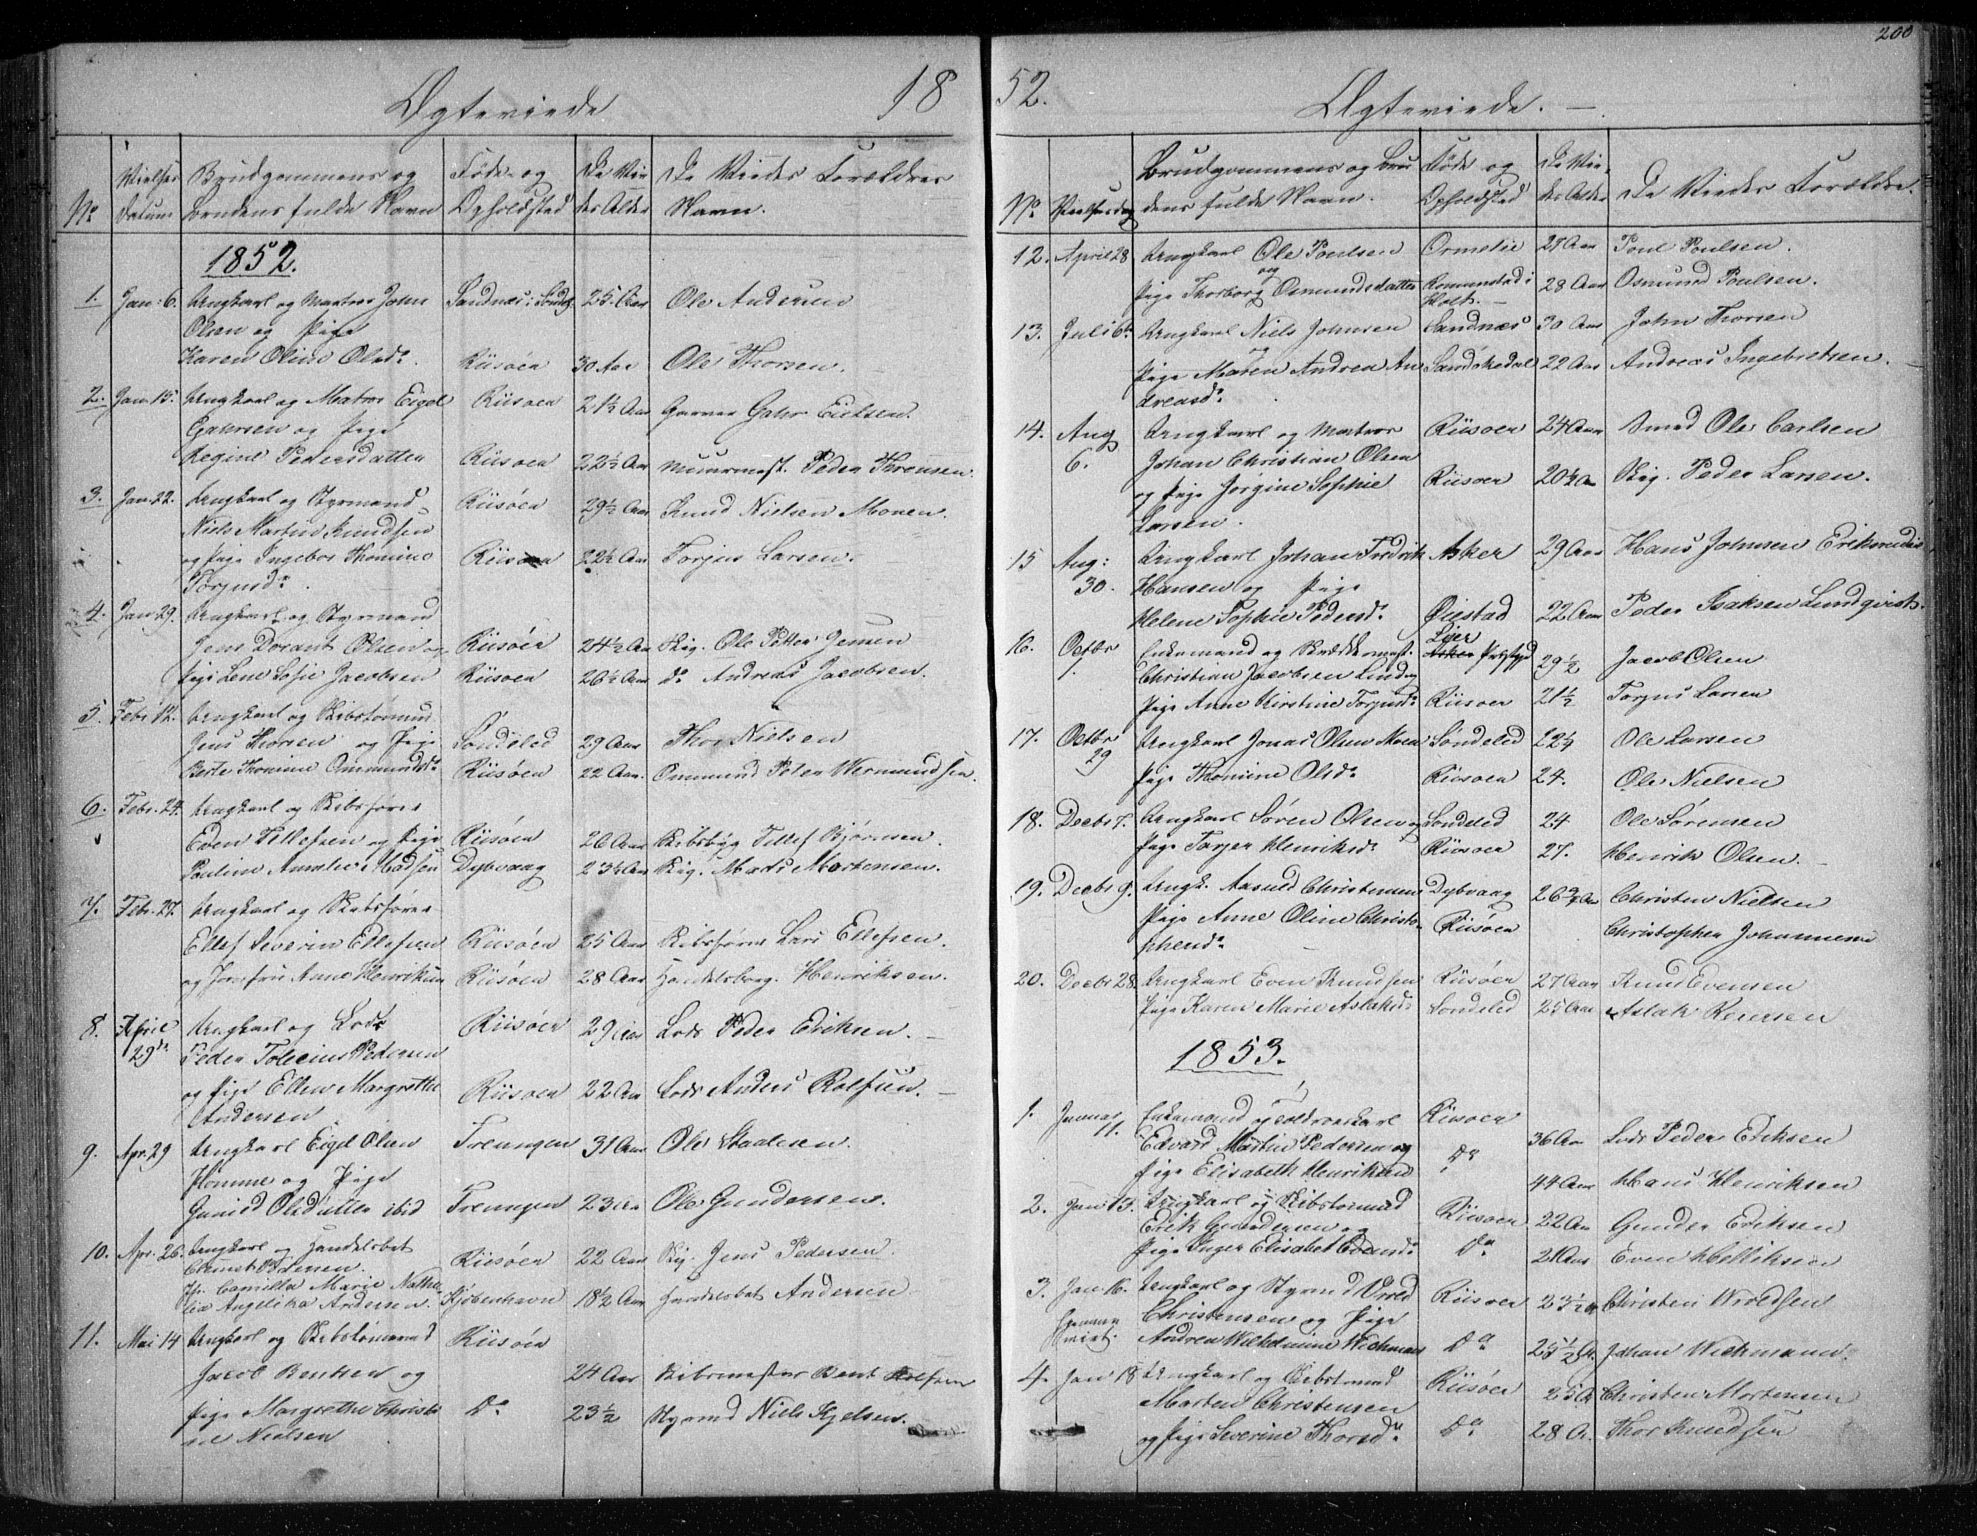 200
18
52.
Ægteviede
No
Vielses Datum
Brudgommens og Brudens fulde Navn
Føde- og Opholdsted
De Viedes Alder
De Viedes Forældres Navn.
1852.
1. Jan: 6. Ungkarl og Matros John Sandnæs i Sønd: 25 Aar Ole Andersen
Olsen og Pige
Karen Oline Olsd. Riisøer 30 Aar Ole Thorsen.
2. Jan. 15. Ungkarl og Matros Eigel Riisøer 21½ Aar Garver Eielsen.
og Pige
Regine Pedersdatter Riisøer 22½ Aar Muurmest. Peder
3. Jan. 22. Ungkarl og Styrmand Riisøer 29½ Aar Knud Nielsen Moner.
Niels Martin Knudsen
og Pige Ingebor Thomine Riisøer 22½ Aar Torjus Larsen.
Torjusd.
4. Jan 29. Ungkarl og Styrmand
Jens Olsen og Riisøer 24½ Aar Skig. Ole Jensen
Pige Lene Sofie Jacobsen Riisøer 26½ Aar do Andreas Jacobsen.
5. Febr 12. Ungkarl og Skibstømm.
Jens Thorsen og Pige Søndeled 29 Aar Thor Nielsen
Berte Thomine Ommundsd. Riisøer 22 Aar. Ommund Peter Wermundsen.
6. Febr. 24. Ungkarl og Skibsfører
Even Tellefsen og Pige Riisøer 26 Aar Skibsbyg Tellef Bjørnsen.
Pauline Amalie Madsen Dybvaag 23½ Aar Skig. Mads Mortensen.
7. Febr. 27. Ungkarl og Skibsfører
Ellef Severin Ellefsen Riisøer 25 Aar Skibsfører Lars Ellefsen.
og Jomfru Anne Henriksen Riisøer 28 Aar Handelsborg. Henriksen.
8. April Ungkarl og Lods Riisøer 29 Aar Lods Peder Eriksen.
29de Peder Pedersen
og Pige Ellen Margrethe Riisøer 22 Aar Lods Anders Rolfsen.
Andersen
9. Apr. 29 Ungkarl Eigel Olsen Treungen 31 Aar Ole Staalesen.
Homme og Pige
Gunild Olsdatter ibid Treungen 23 Aar Ole Gundersen.
10. Apr. 26. Ungkarl og Handelsbet Riisøer 22 Aar Skig. Jens Pedersen.
Jfr. Camilla Marie Nathalia Angelika Andersen. Kjøbenhavn 18½ Aar Handelsbet Andersen
11. Mai 14 Ungkarl og Skibstømmermd Riisøer
Jacob Bentsen og 24 Aar Skibsmester Bent
Pige Margrethe Christine Nielsen Do 23½ Styrmd Niels Kjelsen.
Ægteviede.
No
Vielsesdag
Brudgommens og Brudens fulde Navn.
Føde og Opholdsted
De Viedes Alder
De Viedes Forældre.
12. April 28 Ungkarl Ole Poulsen Ormelie 27 Aar Poul Poulsen.
og
Pige Thorborg Osmundsdatter Romundstad i Holt. 28 Aar Osmund Poulsen.
13. Juli 6te Ungkarl Niels Johnsen Sandnæs 30 Aar John Thorsen
Pige Maren Andrea Andreasd. Sandøkedal 22 Aar Andreas Ingebretsen.
14. Aug 6. Ungkarl og Matros Riisøer 24 Aar Smed Ole Carlsen
Johan Christian Olsen
og Pige Jørgine Sophie Riisøer 20½ Aar Skig. Peder Larsen.
Larsen.
15 Aug: 30. Ungkarl Johan Fredrik Asker 29 Aar Hans Johnsen
Hansen og Pige
Helene Sophie Pedersd. Øiestad 22 Aar Peder Isaksen Lundqvist.
16. Octbr 1. Enkemand og Skræddermest. Lier Præstgd 29½ Jacob Olsen
Christian Jacobsen Lind og
Pige Anne Kirstine Torjusd. Riisøer 21½ Torjus Larsen
17. Octbr 29 Ungkarl Jonas Olsen Moen Søndeled 22½ Ole Larsen
Pige Thomine Olsd. Riisøer 24. Ole Nielsen
18. Decbr 7. Ungkarl Søren Olsen og Søndeled 24 Ole Sørensen
Pige Torjer Henriksd. Riisøer 27. Henrik Olsen.
19. Decbr 9. Ungk. Aasuld Christensen Dybvaag 26¾ Aar Christen Nielsen
Pige Anne Oline Christophersd. Riisøer Christopher Johannesen
20. Decbr 28. Ungkarl Even Knudsen Riisøer 27 Aar Knud Evensen
Pige Karen Marie Aslaksd. Søndeled 25 Aar Aslak Reiersen
1853.
1. Januar 11. Enkemand Riisøer
Edvard Martin Pedersen og 36 Aar Lods Peder Eriksen
Pige Elisabeth Henriksen Do 44 Aar Hans Henriksen
2. Jan 13. Ungkarl og Skibstømmermd Riisøer 22 Aar Gunder Eriksen
Erik Gundersen og
Pige Inger Elisabet Evensd. Do 21 Aar Even
3. Jan 16. Ungkarl og Styrmd Wrold Riisøer 23½ Aar Christen Wroldsen
Christensen og Pige
Andrea Wilhelmine Wichman Do 25½ A. Johan Wichmann.
4. Jan 18 Ungkarl og Skibstømmd Riisøer 25 A. Christen Mortensen
Morten Christensen
og Pige Severine Thorsd. Do 28 A. Thor Knudsen